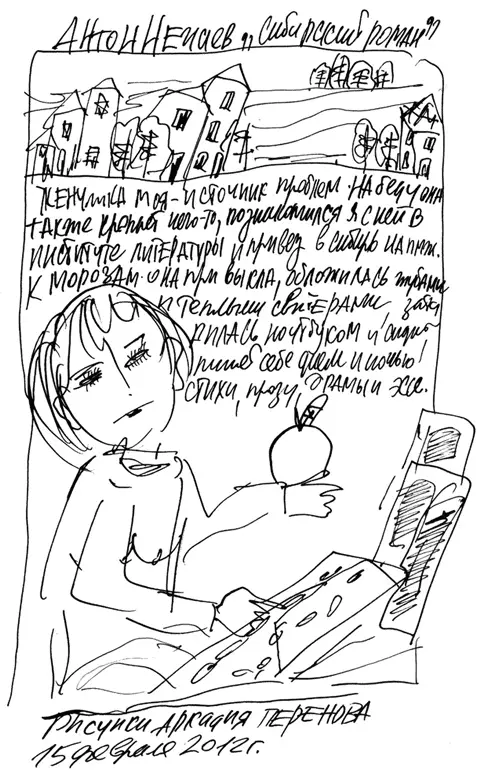 Антон Нечаев „Сибирский роман"
Женушка моя - источник проблем. На беду она
также кропает чего-то, познакомился я с ней в
институте литературы и привез в Сибирь на ПМЖ.
К морозам она привыкла, обложилась шубами
и теплыми свитерами,
рилась ноутбуком и сидит
пишет себе днем и ночью!
стихи, прозу, драмы и эссе.
Рисунки Аркадия Перенова
15 февраля 2012г.